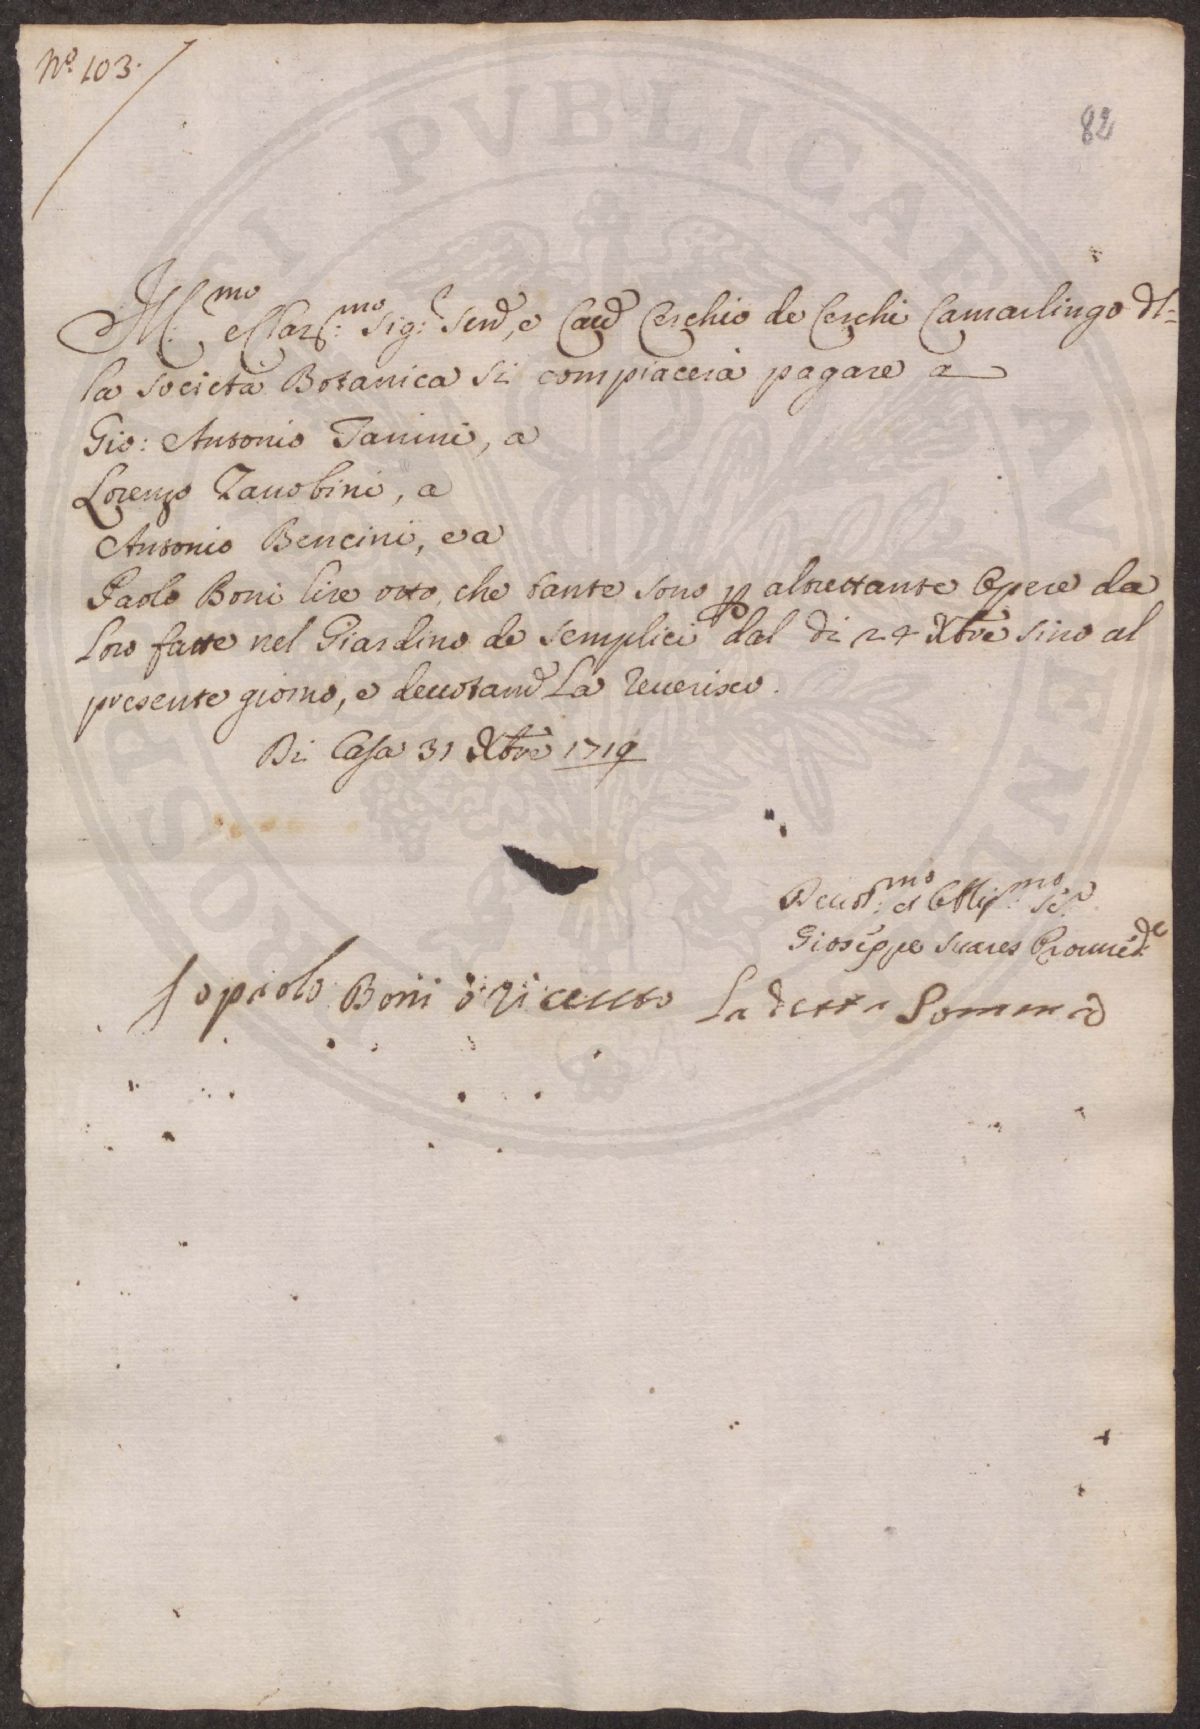 N.º 103.
82
Ill.mo e Clariss.mo Sig.r Send, e Caud Cerchio de Cerchi Camarlingo dl=
la società Botanica si compiacerà pagare a
Gio: Antonio Tanini, a
Lorenzo Zanobini, a
Antonio Bencini, e a
Paolo Boni lire otto, che tante sono p altrettante Opere da
loro fatte nel Giardino de semplici dal di 24 Xbre sino al
presente giorno, e deuotamd La reuerisco.
Di Casa 31 Xbre 1719
Deuot.mo et Obblig.mo Se.r
Gioseppe Suares Prouued.e
Io paolo Boni ò riceuuto La detta Somma